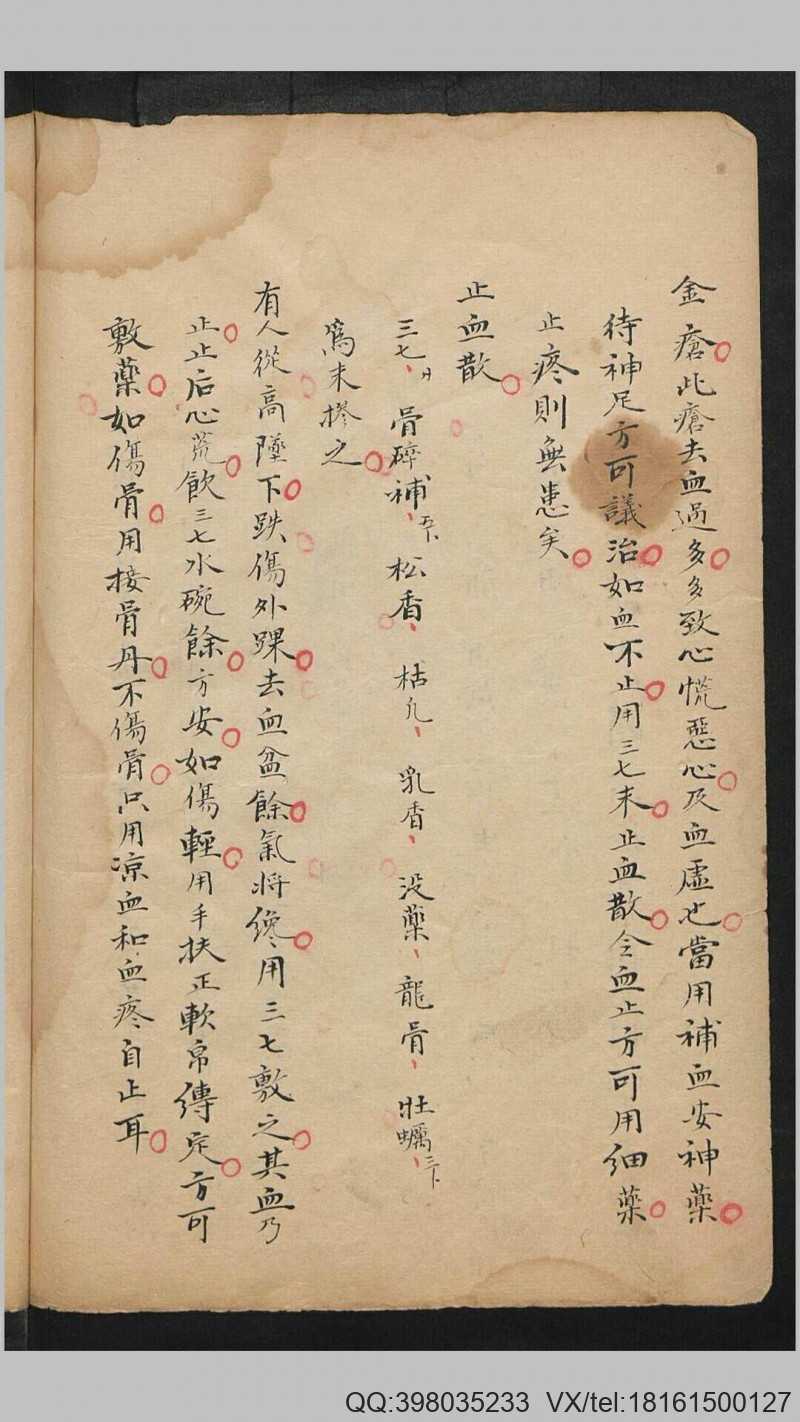 金瘡此瘡去血過多多致心慌惡心及血虛也當用補血安神藥
待神足方可議治如血不止用三七末止血散令血止方可用細藥
止疼則無患矣
止血散
三七 骨碎補 松香 枯凡 乳香 没藥 龍骨 牡蠣
爲末摻之
有人從高墜下跌傷外踝去血盆餘氣將纔用三七敷之其血乃
止止后心荒飲三七水碗餘方安如傷輕用手扶正軟帛縛定方可
敷藥如傷骨用接骨丹不傷骨只用凉血和血疼自止耳
QQ:398035233 VX/tel:18161500127